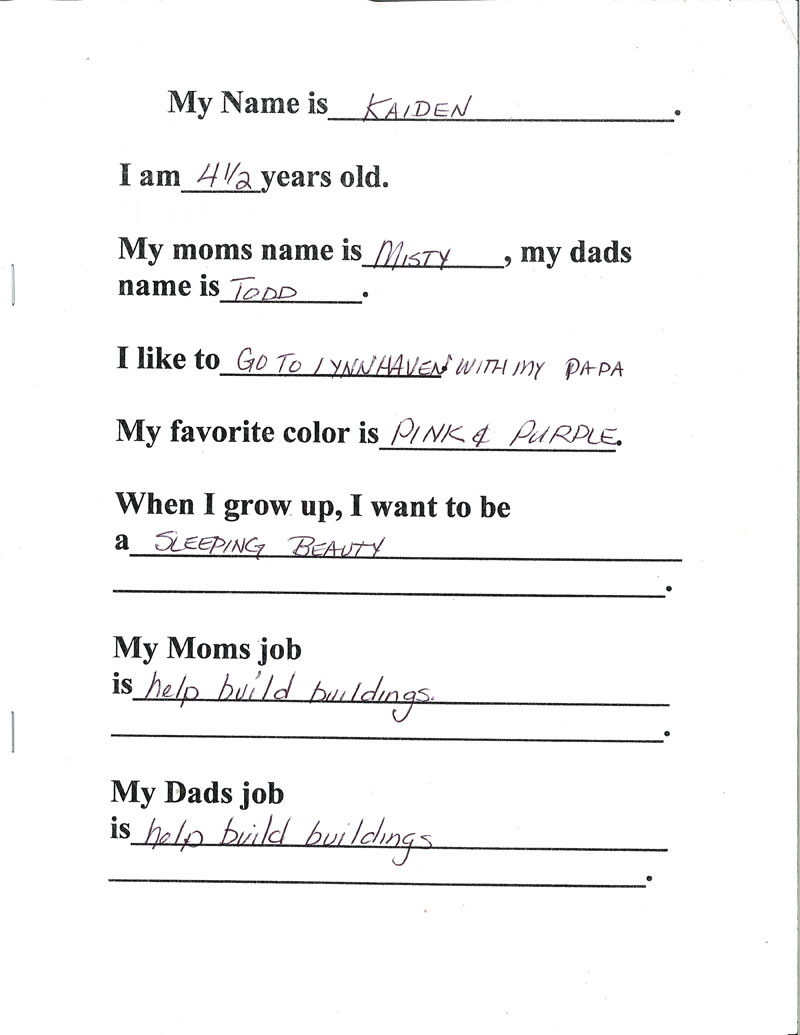 My Name is KAIDEN.
I am 4 1/2 years old.
My moms name is MISTY, my dads
name is TODD.
I like to GO TO LYNNHAVEN. WITH MY PAPA
My favorite color is PINK & PURPLE.
When I grow up, I want to be
a SLEEPING BEAUTY
.
My Moms job
is help build buildings.
.
My Dads job
is help build buildings
.